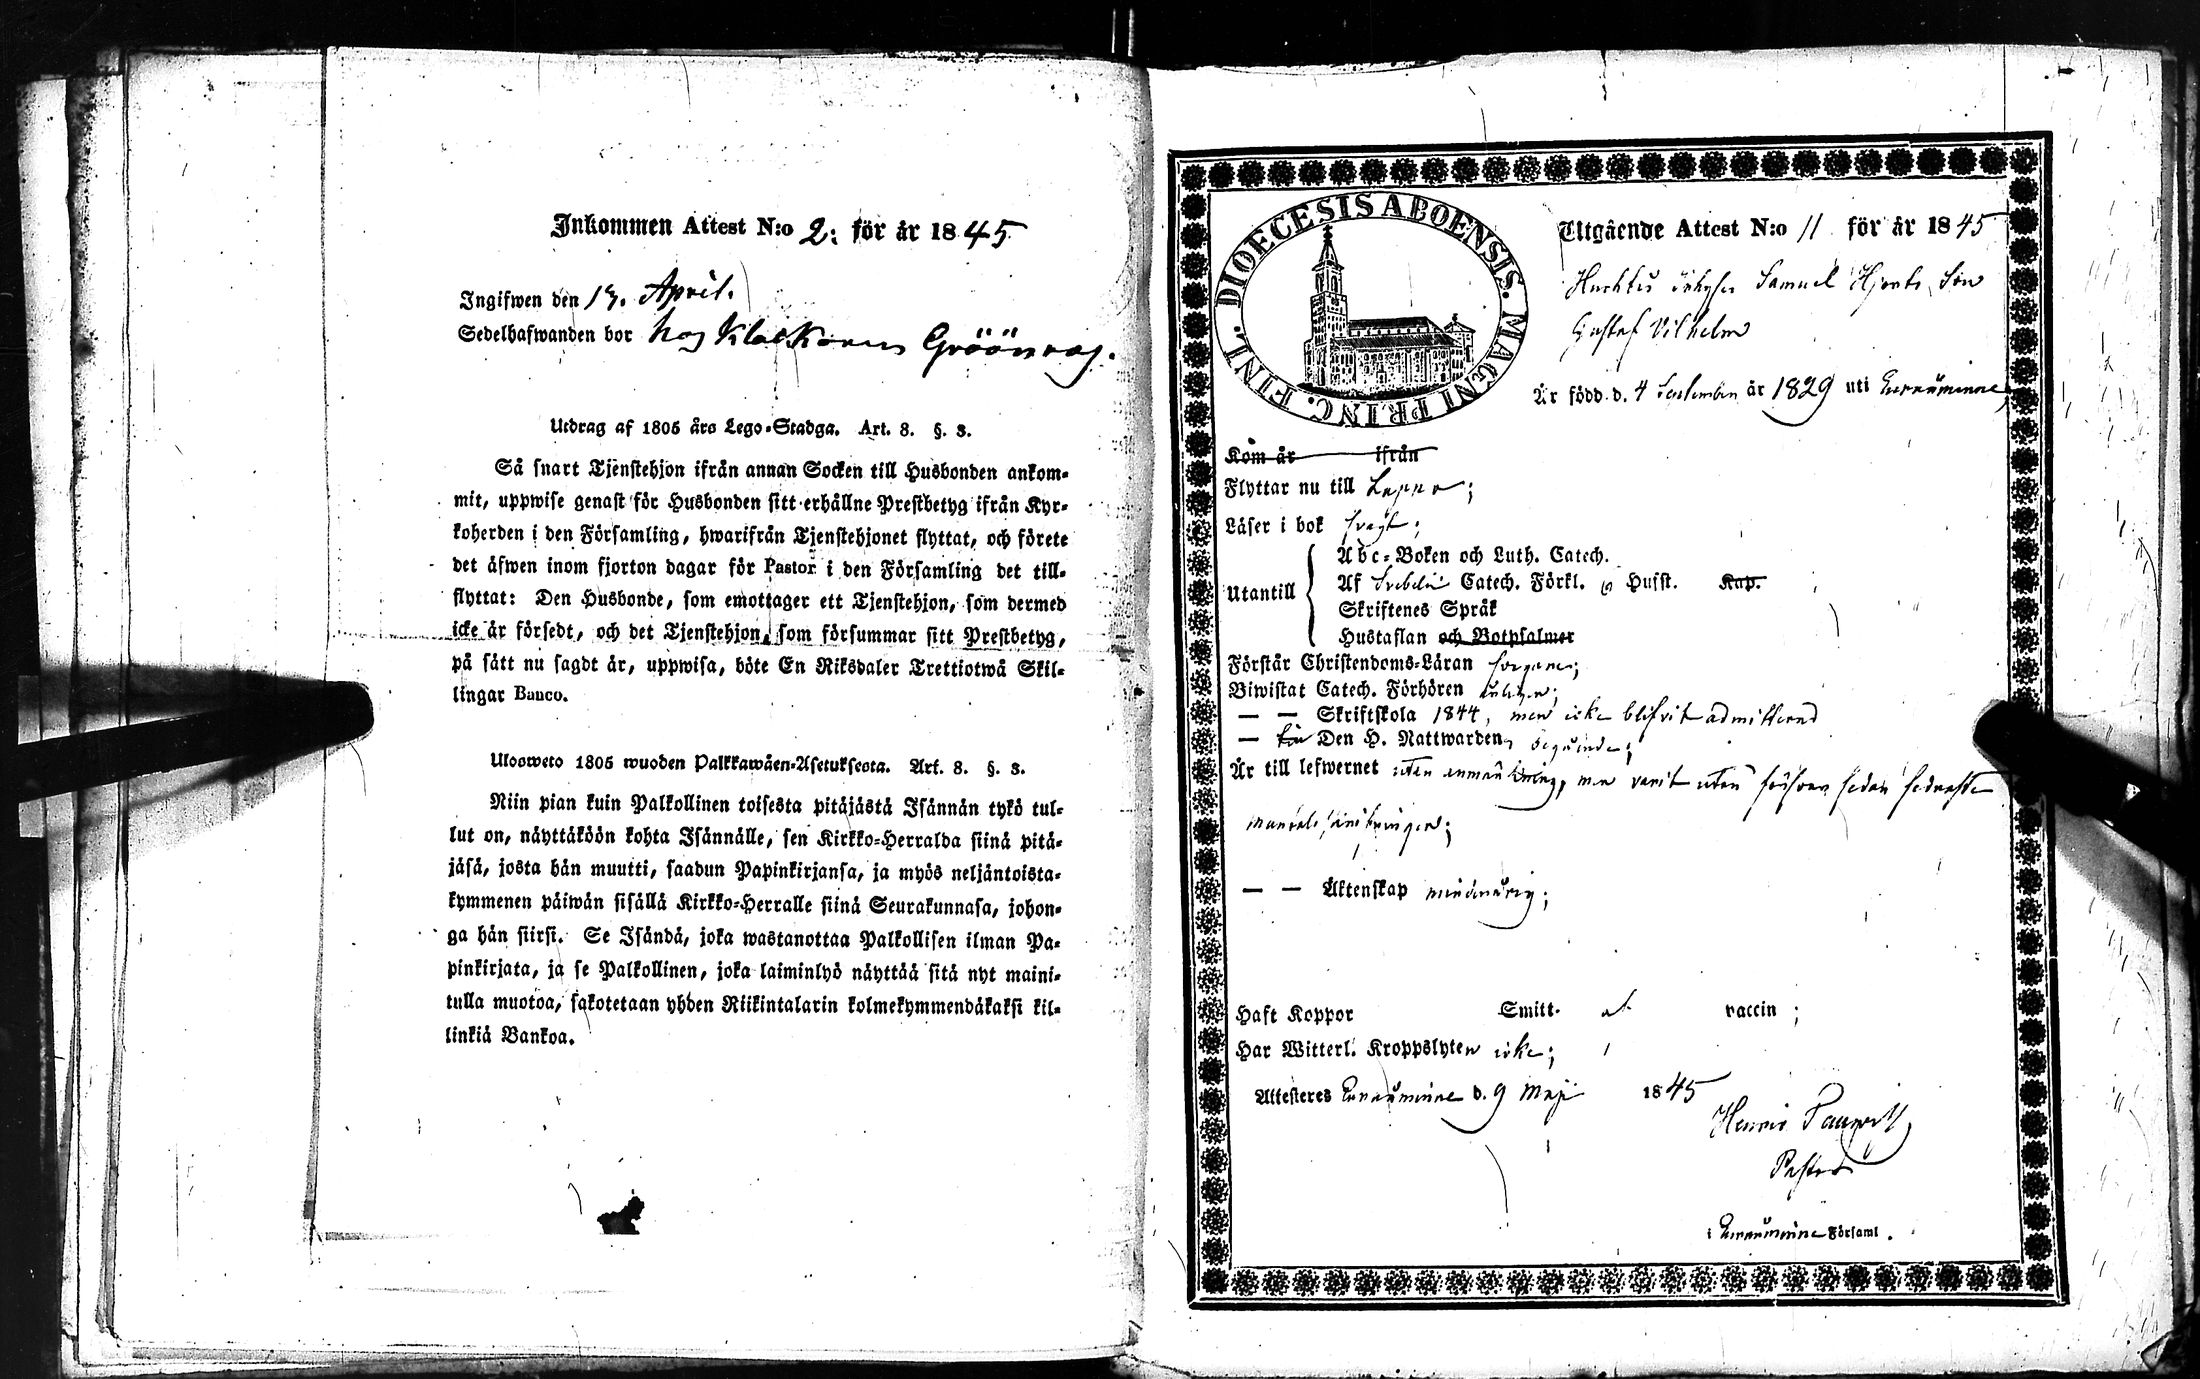 Inkommen Attest N:o 2: för år 1845
Ingifwen den 13. April.
Sedelhafwanden bor hos Klockaren Gröönroos.
Utdrag af 1805 års Lego-Stadga. Art. 8. §. 3.
Så snart Tjenstehjon ifrån annan Socken till Husbonden ankom-
mit, uppwise genast för Husbonden sitt erhållne Prestbetyg ifrån Kyr-
koherden i den Församling, hwarifrån Tjenstehjonet flyttat, och förete
det äfwen inom fjorton dagar för Pastor i den Församling det till-
flyttat: Den Husbonde, som emottager ett Tjenstehjon, som dermed
icke är försedt, och det Tjenstehjon, som försummar sitt Prestbetyg,
på sätt nu sagdt är, uppwisa, böte En Riksdaler Trettiotwå Skil-
lingar Banco.
Ulosweto 1805 wuoden Palkkawäen-Asetuksesta. Art. 8. §. 3.
Niin pian kuin Palkollinen toisesta pitäjästä Isännän tykö tul-
lut on, näyttäköön kohta Isännälle, sen Kirkko-Herralda siinä pitä-
jäsä, josta hän muutti, saadun Papinkirjansa, ja myös neljäntoista-
kymmenen päiwän sisällä Kirkko-Herralle siinä Seurakunnasa, johon-
ga hän siirsi. Se Isändä, joka wastanottaa Palkollisen ilman Pa-
pinkirjata, ja se Palkollinen, joka laiminlyö näyttää sitä nyt maini-
tulla muotoa, sakotetaan yhden Riikintalarin kolmekymmendäkaksi kil-
linkiä Bankoa.
DIOECESIS ABOENSIS. MAGNI PRINC. FINL.
Utgående Attest N:o 11 för år 1845
Samuel Hjorts Son
Gustaf Vilhelm
Är född d. 4 September år 1829 uti Euraåminne,
Kom år ifrån
Flyttar nu till Lappo;
Läser i bok svagt;
Abc-Boken och Luth. Catech.
Utantill Af Svebelii Catech. Förkl. o Husst. Kap.
Skriftenes Språk
Hustaflan och Botpsalmer
Förstår Christendoms-Läran
Biwistat Catech. Förhören
— — Skriftskola 1844, men icke blifvit admitterad
— Den H. Nattwarden begående;
Är till lefwernet utan anmärkning, men varit utan försvar sedan sednaste
mantals skrifningen;
— — Äktenskap minderårig;
Haft Koppor Smitt. af vaccin;
Har Witterl. Kroppslyten icke;
Attesteres Euraåminne d. 9 Maji 1845
Henric
Pastor
i Euraåminne Församl.